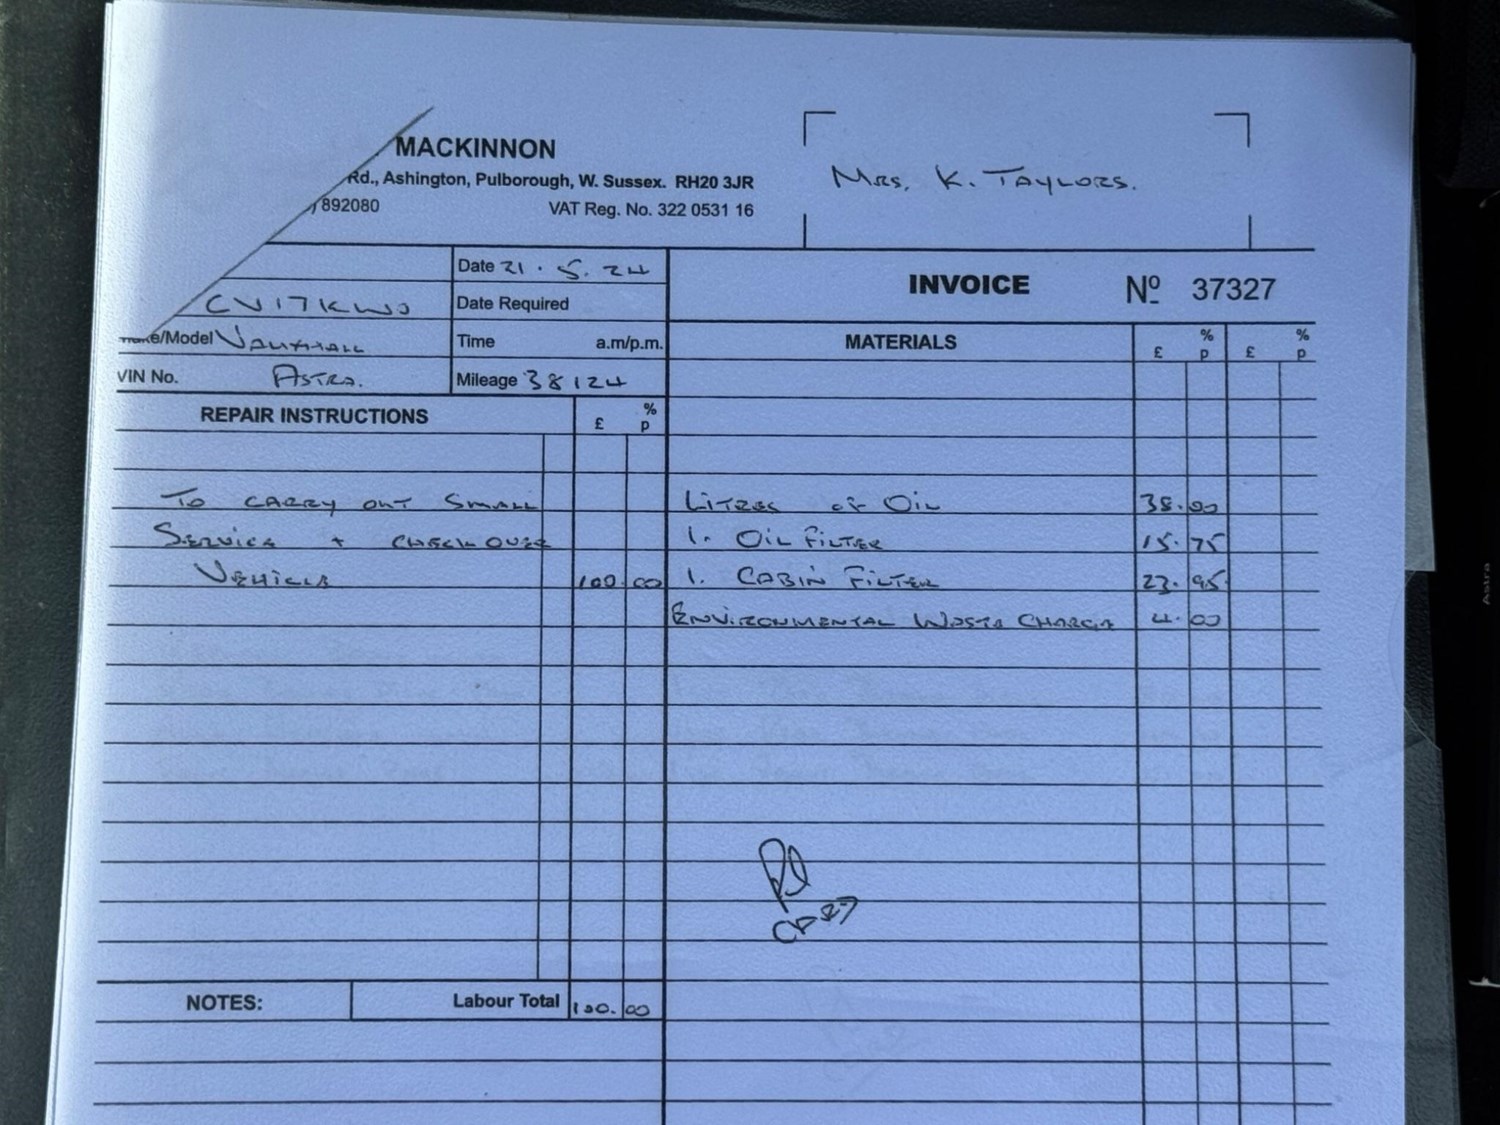 MACKINNON
Rd., Ashington, Pulborough, W. Sussex. RH20 3JR
) 892080 VAT Reg. No. 322 0531 16
Mrs. K. TAYLORS.
Date 21.5.24
CV17KWO Date Required
Make/Model VAUXHALL Time a.m/p.m.
VIN No. ASTRA. Mileage 38124
INVOICE Nº 37327
REPAIR INSTRUCTIONS £ % p
TO CARRY OUT SMALL
SERVICE + CHECK OVER
VEHICLE 100.00
MATERIALS £ % p £ % p
LITRES OF OIL 38.00
1. OIL FILTER 15.75
1. CABIN FILTER 23.95
ENVIRONMENTAL WASTE CHARGE 4.00
PD
NOTES: Labour Total 100.00
Astra